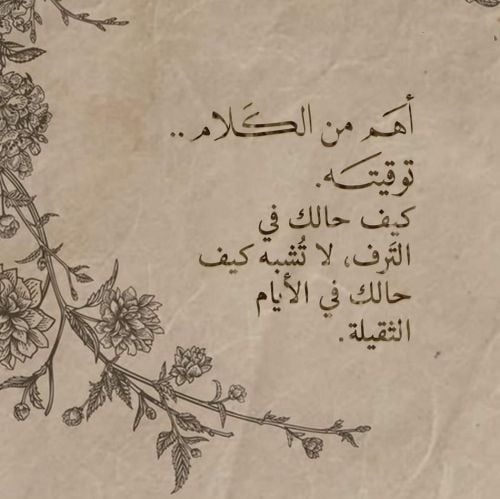 أهَم من الكَلام ..
توقيتَـه.
كيف حالك في
التَرف، لا تُشبه كيف
حالك في الأيام
الثقيلة.